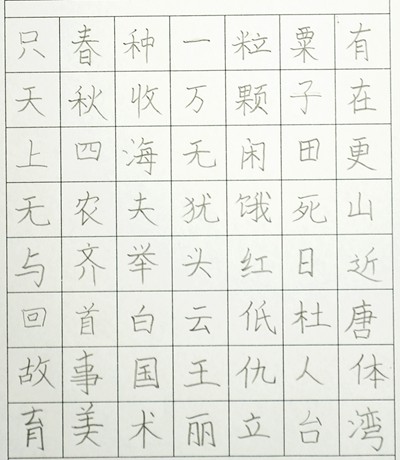 只春种一粒粟有
天秋收万颗子在
上四海无闲田更
无农夫犹饿死山
与齐举头红日近
回首白云低杜唐
故事国王仇人体
育美术丽立台湾